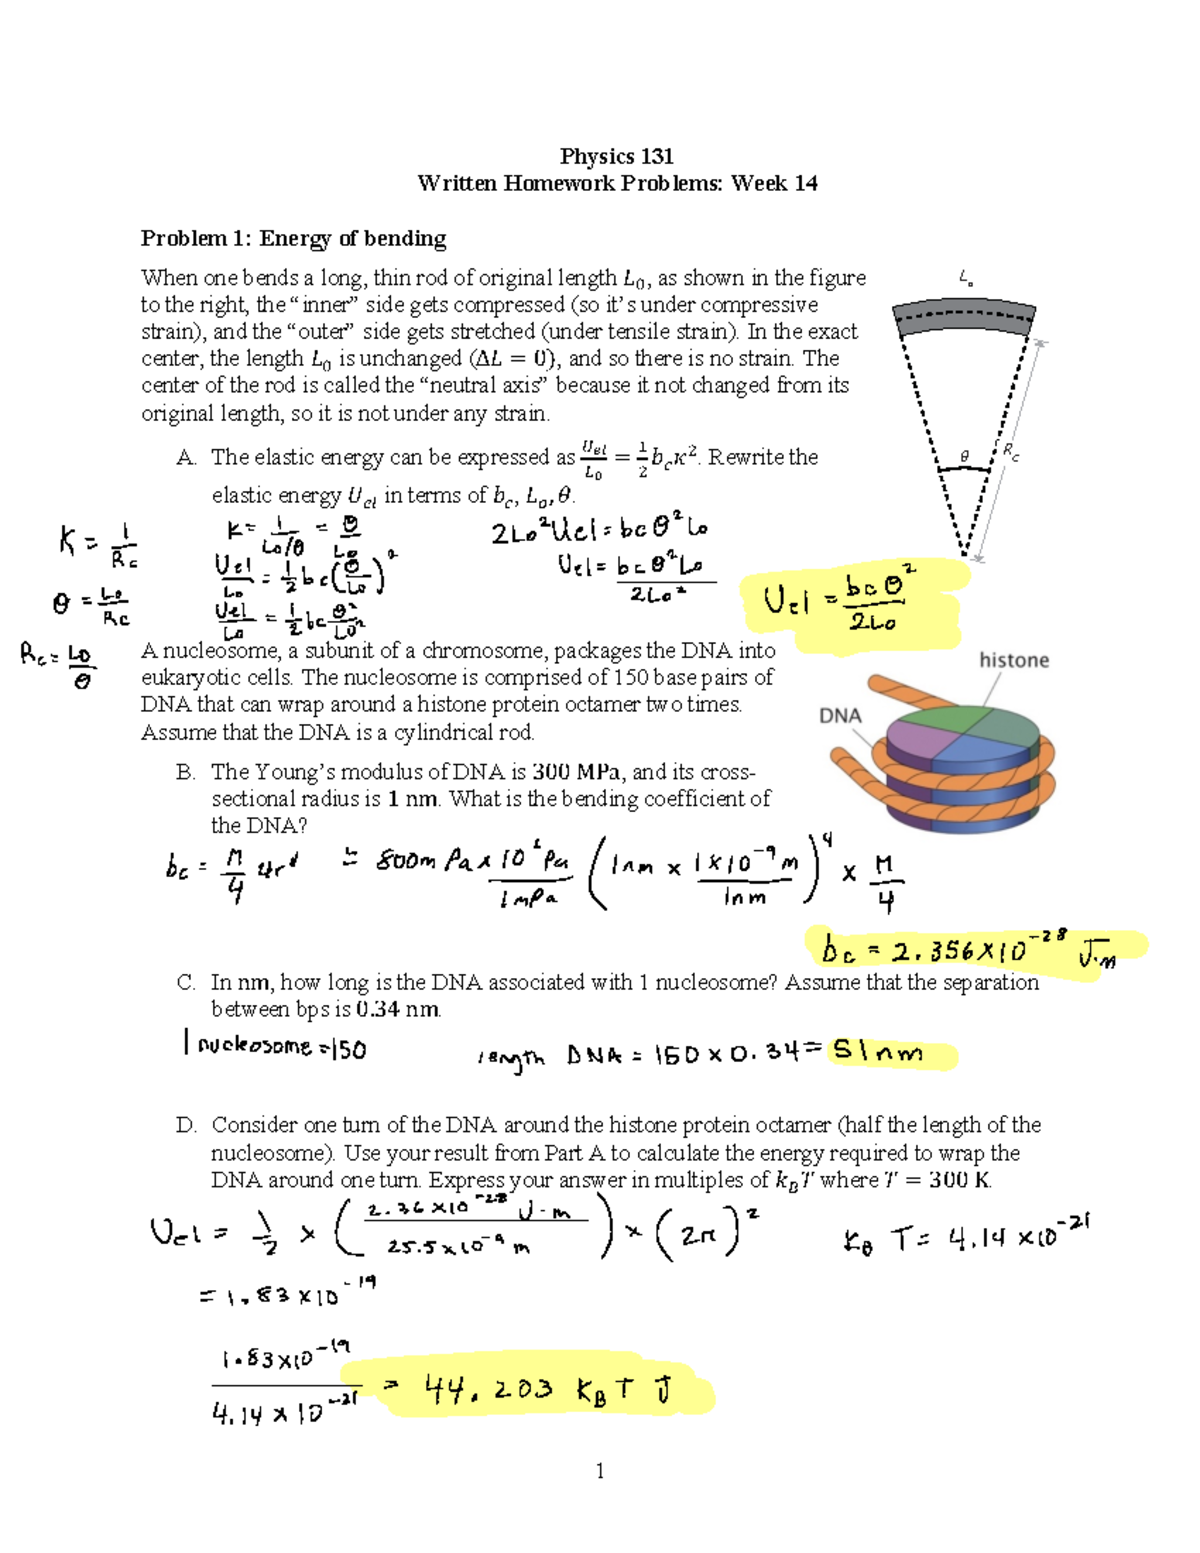 Physics 131
Written Homework Problems: Week 14
Problem 1: Energy of bending
When one bends a long, thin rod of original length L₀, as shown in the figure
to the right, the “inner” side gets compressed (so it’s under compressive
strain), and the “outer” side gets stretched (under tensile strain). In the exact
center, the length L₀ is unchanged (ΔL = 0), and so there is no strain. The
center of the rod is called the “neutral axis” because it not changed from its
original length, so it is not under any strain.
Lₒ
θ
R_c
A. The elastic energy can be expressed as U_el/L₀ = 1/2 b_c κ². Rewrite the
elastic energy U_el in terms of b_c, Lₒ, θ.
K = 1/Rc
θ = Lo/Rc
Rc = Lo/θ
K = 1/(Lo/θ) = θ/Lo
Uel/Lo = 1/2 bc (θ/Lo)²
Uel/Lo = 1/2 bc θ²/Lo²
2Lo² Uel = bc θ² Lo
Uel = bc θ² Lo/2Lo²
Uel = bc θ²/2Lo
A nucleosome, a subunit of a chromosome, packages the DNA into
eukaryotic cells. The nucleosome is comprised of 150 base pairs of
DNA that can wrap around a histone protein octamer two times.
Assume that the DNA is a cylindrical rod.
histone
DNA
B. The Young’s modulus of DNA is 300 MPa, and its cross-
sectional radius is 1 nm. What is the bending coefficient of
the DNA?
bc = π/4
(1nm × 1×10⁻⁹m/1nm)⁴ × π/4
bc = 2.356×10⁻²⁸ J·m
C. In nm, how long is the DNA associated with 1 nucleosome? Assume that the separation
between bps is 0.34 nm.
1 nucleosome = 150
length DNA = 150 × 0.34 = 51nm
D. Consider one turn of the DNA around the histone protein octamer (half the length of the
nucleosome). Use your result from Part A to calculate the energy required to wrap the
DNA around one turn. Express your answer in multiples of k_BT where T = 300 K.
Uel = 1/2 × (2.36×10⁻²⁸ J·m/25.5×10⁻⁹ m) × (2π)²
KB T = 4.14×10⁻²¹
= 1.83×10⁻¹⁹
1.83×10⁻¹⁹/4.14×10⁻²¹ = 44.203 KB T J
1